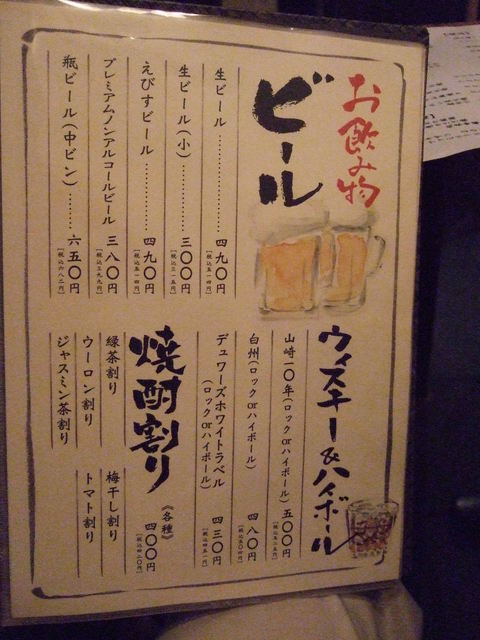 お飲み物
ビール
生ビール…………四九〇円
[税込五一四円]
生ビール(小)…………三〇〇円
[税込三一五円]
えびすビール…………四九〇円
[税込五一四円]
プレミアムノンアルコールビール 三八〇円
[税込三九九円]
瓶ビール(中ビン)………六五〇円
[税込六八二円]
ウィスキー&ハイボール
山崎一〇年(ロックorハイボール) 五〇〇円
[税込五二五円]
白州(ロックorハイボール) 四八〇円
[税込五〇四円]
デュワーズホワイトラベル
(ロックorハイボール) 四三〇円
[税込四五一円]
焼酎割り
《各種》 四〇〇円
[税込四二〇円]
緑茶割り
梅干し割り
ウーロン割り
トマト割り
ジャスミン茶割り